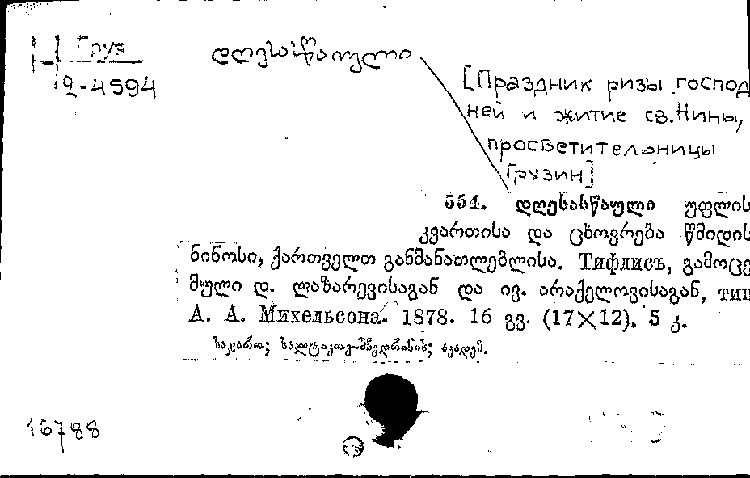 Груз
2-4594
დღესასწაული
[Праздник ризы господ
ней и житие св. Нины,
просветительницы
Грузин]
551. დღესასწაული უფლის
კვართისა და ცხოვრება წმიდის
ნინოსი, ქართველთ განმანათლებლისა. Тифлисъ, გამოცე
მული დ. ლაზარევისაგან და ივ. არაქელოვისაგან, тип
А. А. Михельсона. 1878. 16 გვ. (17×12). 5 კ.
16788